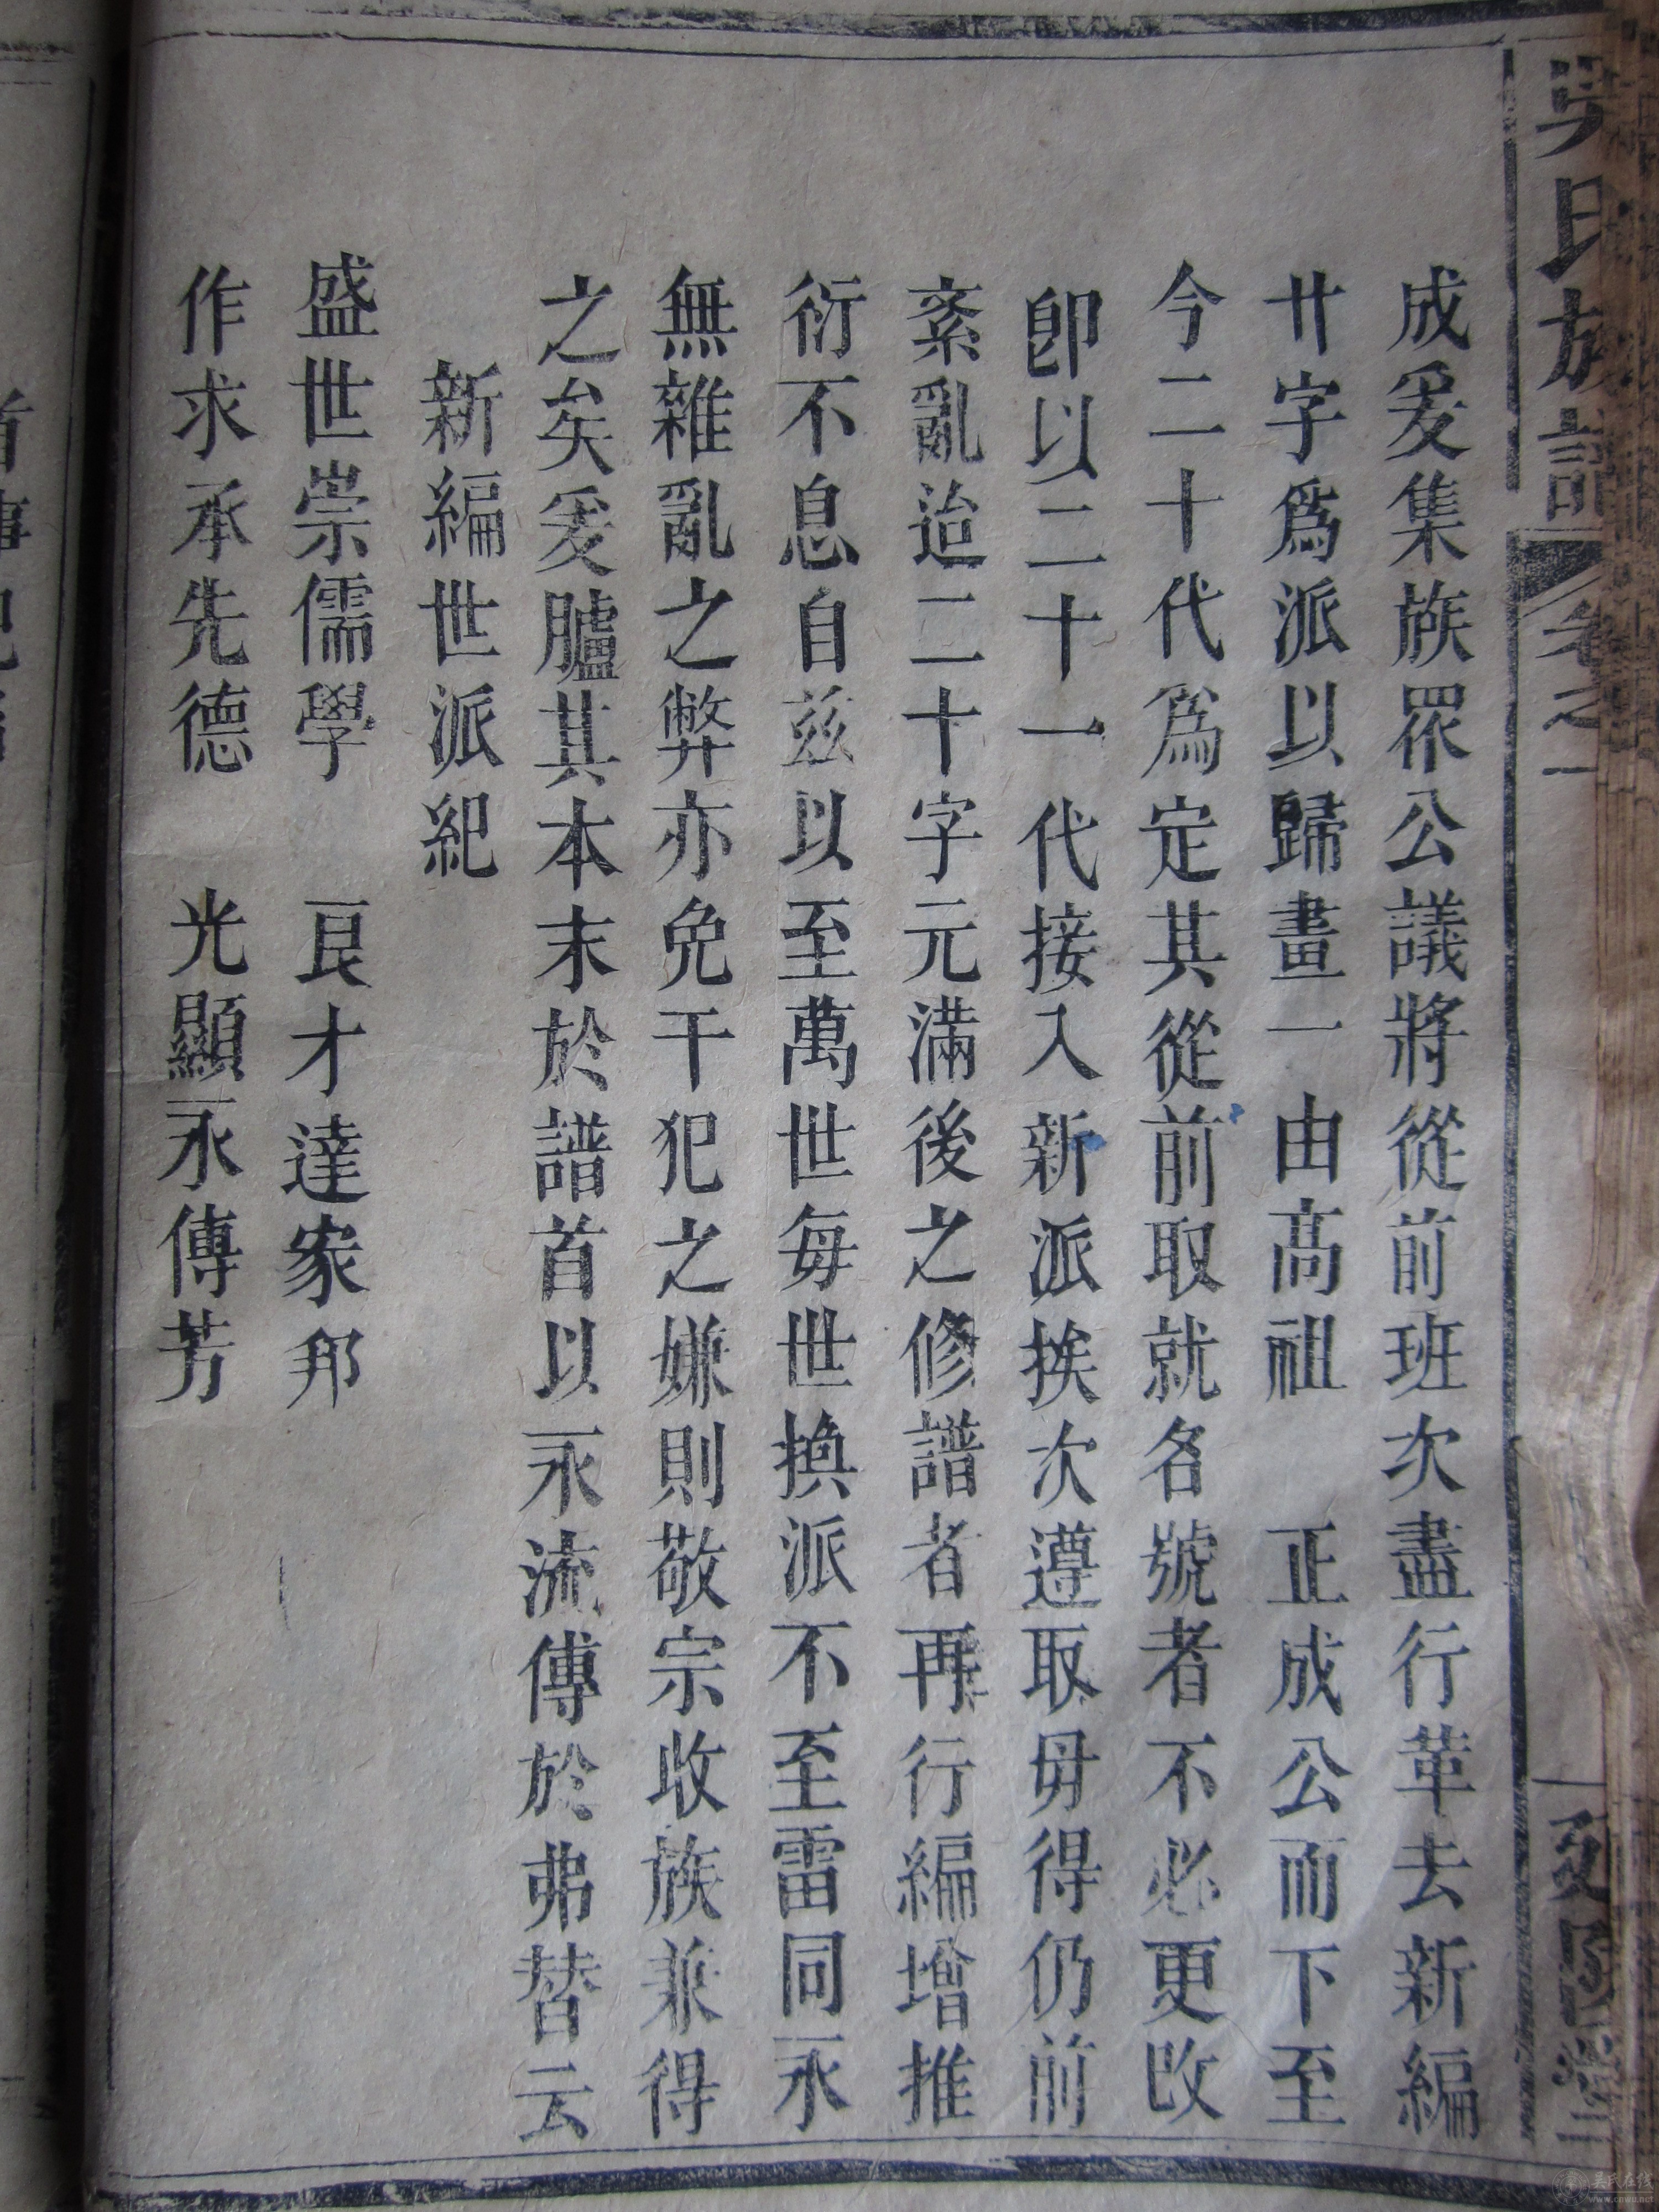 吳氏族譜
卷之一
成爰集族眾公議將從前班次盡行革去新編
廿字爲派以歸畫一由高祖 正成公而下至
今二十代爲定其從前取就名號者不必更改
卽以二十一代接入新派挨次遵取毋得仍前
紊亂迨二十字元滿後之修譜者再行編增推
衍不息自茲以至萬世每世換派不至雷同永
無雜亂之弊亦免干犯之嫌則敬宗收族兼得
之矣爰臚其本末於譜首以永流傳於弗替云
新編世派紀
盛世崇儒學 良才達家邦
作求承先德 光顯永傳芳
吴氏在线
www.cnwu.net